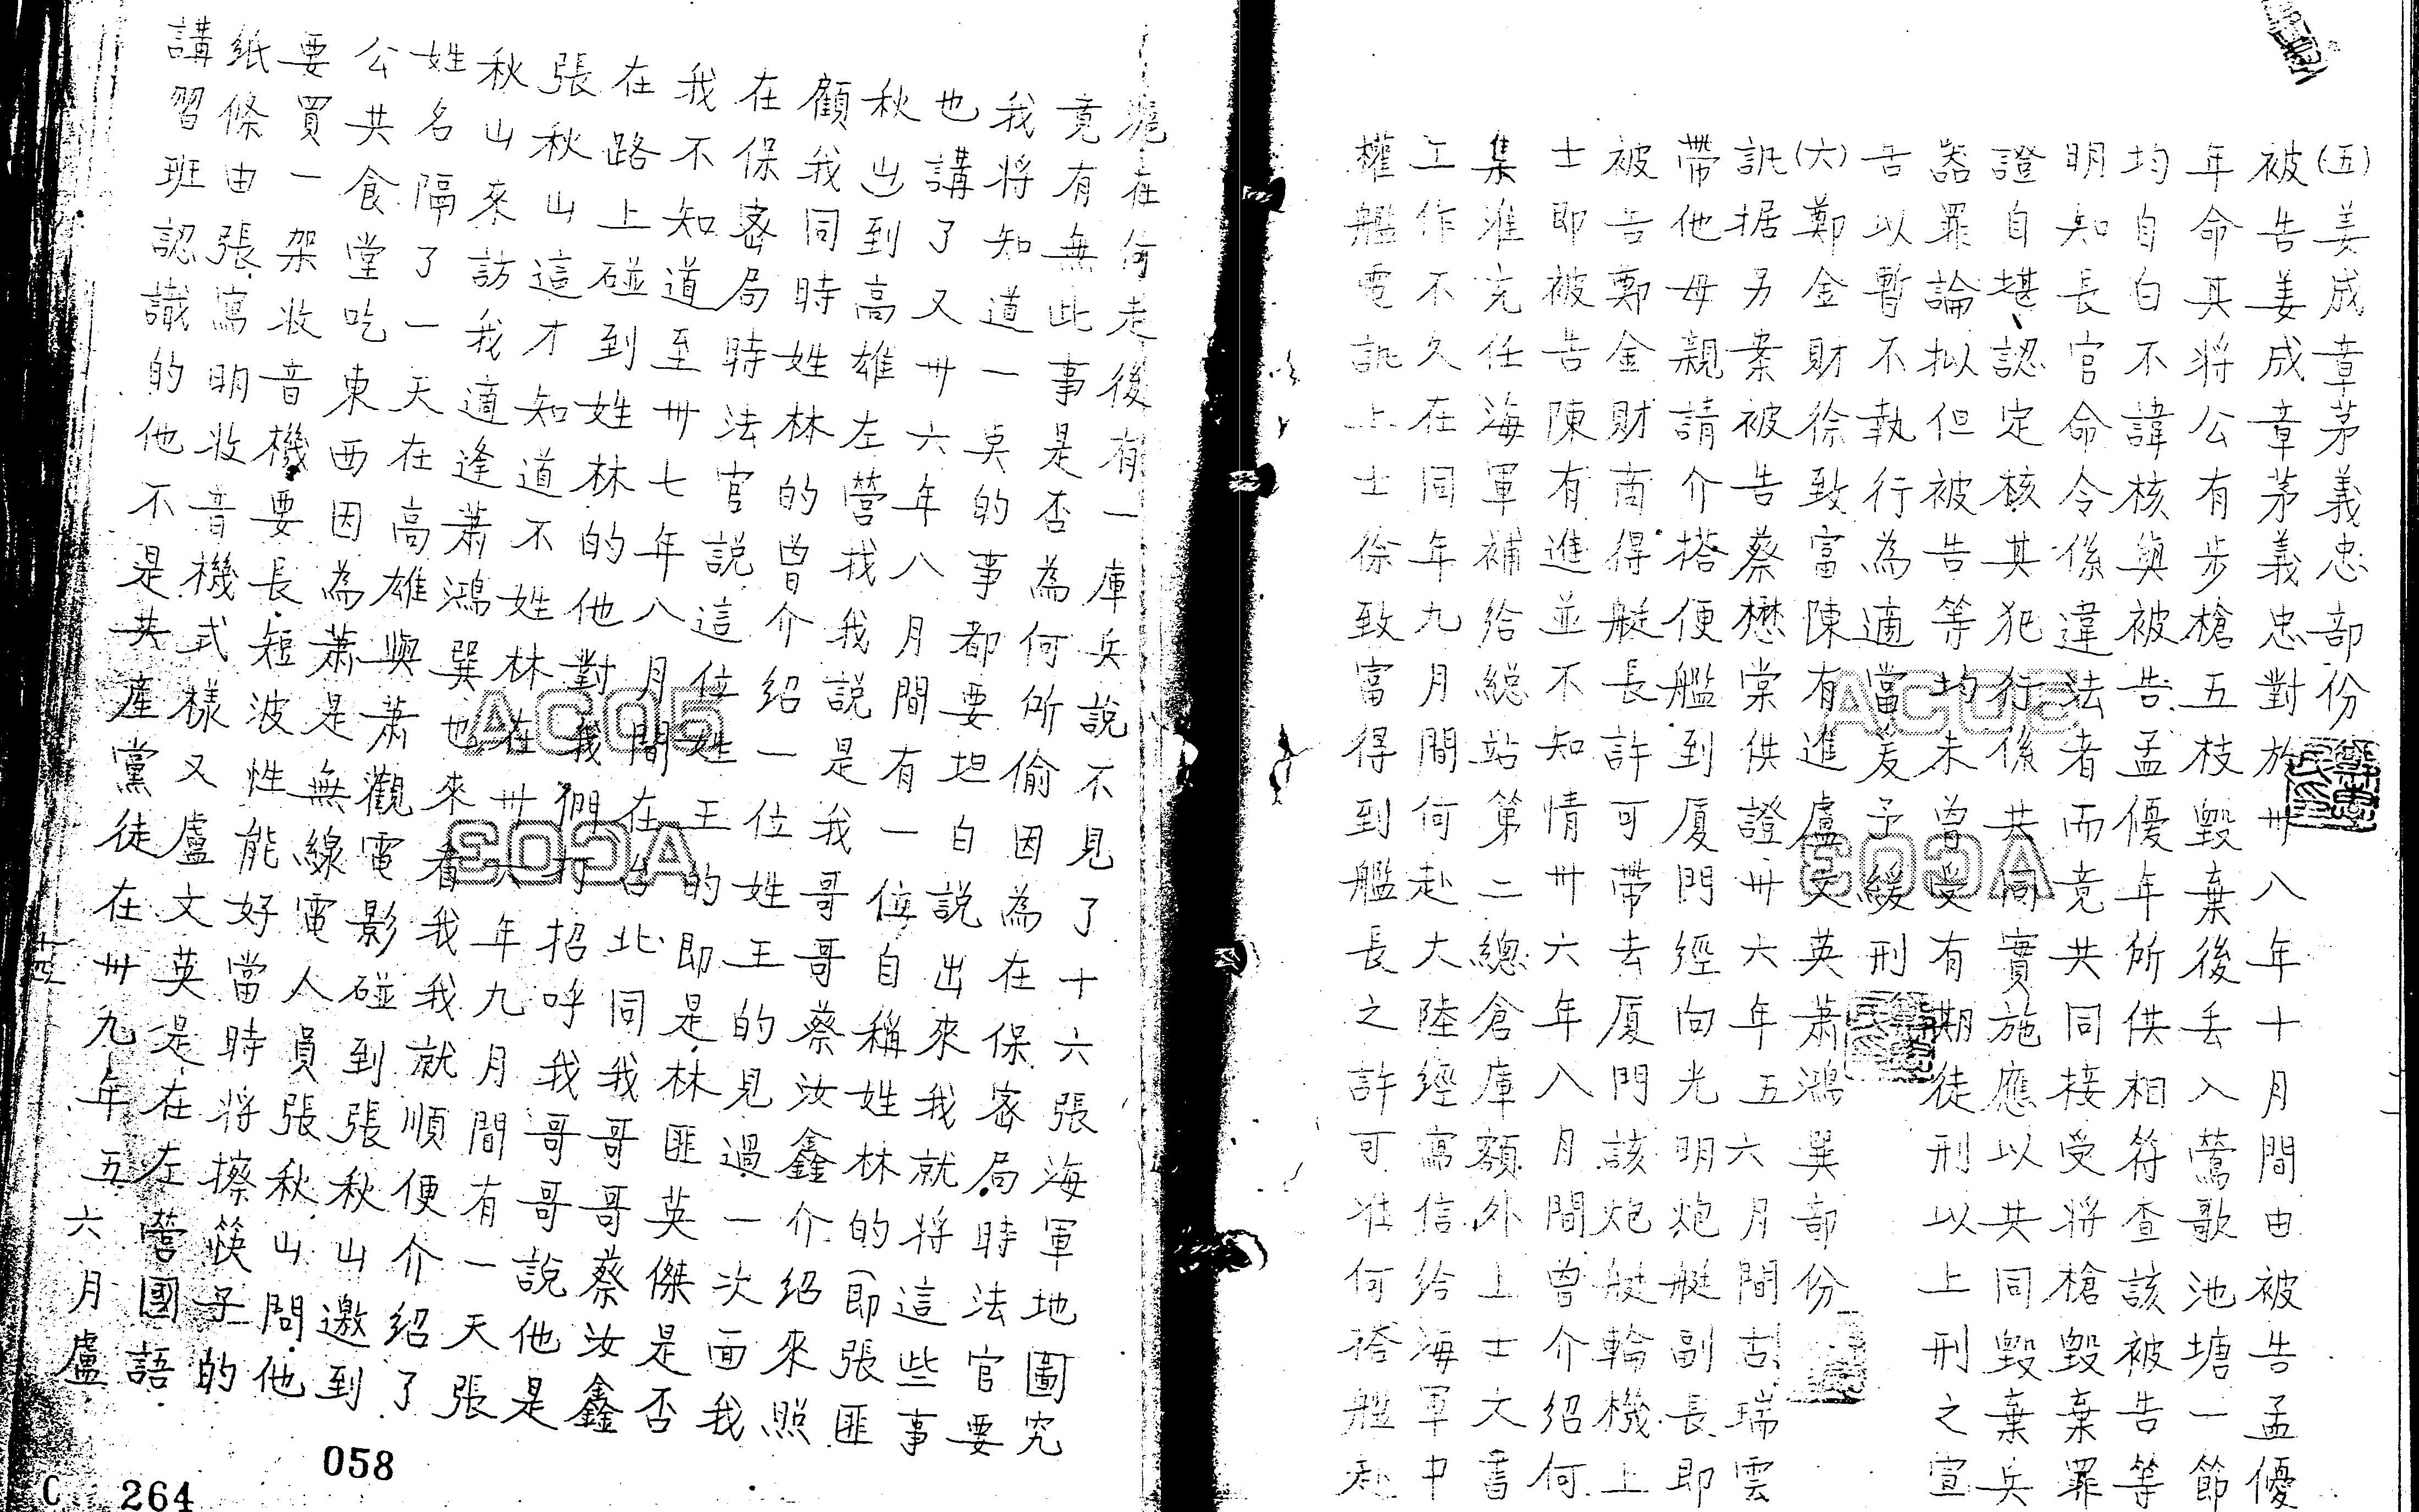 (五)姜成章茅義忠部份
被告姜成章茅義忠對於卅八年十月間由被告孟優
年命其將公有步槍五枝毀棄後丟入鶯歌池塘一節
均自白不諱核與被告孟優年所供相符查該被告等
明知長官命令係違法者而竟共同接受將槍毀棄罪
證自堪認定核其犯行係共同實施應以共同毀棄兵
器罪論拟但被告等均未曾受有期徒刑以上刑之宣
告以暫不執行為適當爰予緩刑
(六)鄭金財徐致富陳有進盧文英蕭鴻巽部份
訊据另案被告蔡懋棠供證卅六年五六月間古瑞雲
帶他母親請介搭便艦到厦門經向光明炮艇副長即
被告鄭金財商得艇長許可帶去厦門該炮艇輪機上
士即被告陳有進並不知情卅六年八月間曾介紹何
集淮充任海軍補給總站第二總倉庫額外上士文書
工作不久在同年九月間何赴大陸經寫信給海軍中
權艦電訊上士徐致富得到艦長之許可准何搭艦赴
滬在何走後有一庫兵說不見了十六張海軍地圖究
竟有無此事是否為何所偷因為在保密局時法官要
我將知道一奌的事都要坦白說出來我就將這些事
也講了又卅六年八月間有一位自稱姓林的即張匪
秋出到高雄左營找我說是我哥哥蔡汝鑫介紹來照
顧我同時姓林的曾介紹一位姓王的見過一次面我
在保密局時法官說這位姓王的即是林匪英傑是否
我不知道至卅七年八月間在台北同我哥哥蔡汝鑫
在路上碰到姓林的他對我們打招呼我哥哥說他是
張秋山這才知道不姓林在卅八年九月間有一天張
秋山來訪我適逢蕭鴻巽也來看我我就順便介紹了
姓名隔了一天在高雄與蕭觀電影碰到張秋山邀到
公共食堂吃東西因為蕭是無線電人員張秋山問他
要買一架收音機要長短波性能好當時將擦筷子的
紙條由張寫明收音機式樣又盧文英是在左營國語
講習班認識的他不是共產黨徒在卅九年五六月盧
058
C 264